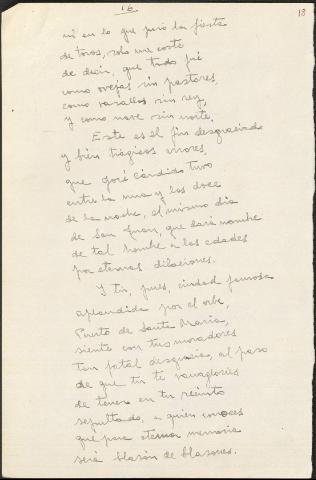 16
18
ni en lo que paró la fiesta
de toros, solo me costó
de decir, que todo fué
como ovejas sin pastores,
como vasallos sin rey,
y como nave sin norte.
Este es el fin desgraciado
y bien trágicos errores,
que José Cándido tuvo
entre la una y las doce
de la noche, el mismo día
de San Juan, que dará nombre
de tal hombre a las edades
por eternas dilaciones.
Y tú, pues, ciudad famosa
aplaudida por el orbe,
Puerto de Santa María,
siente con tus moradores
tan fatal desgracia, al paso
de que tú te vanaglories
de tener en tu recinto
sepultado, a quien conoces
que para eterna memoria
será blasón de blasones.